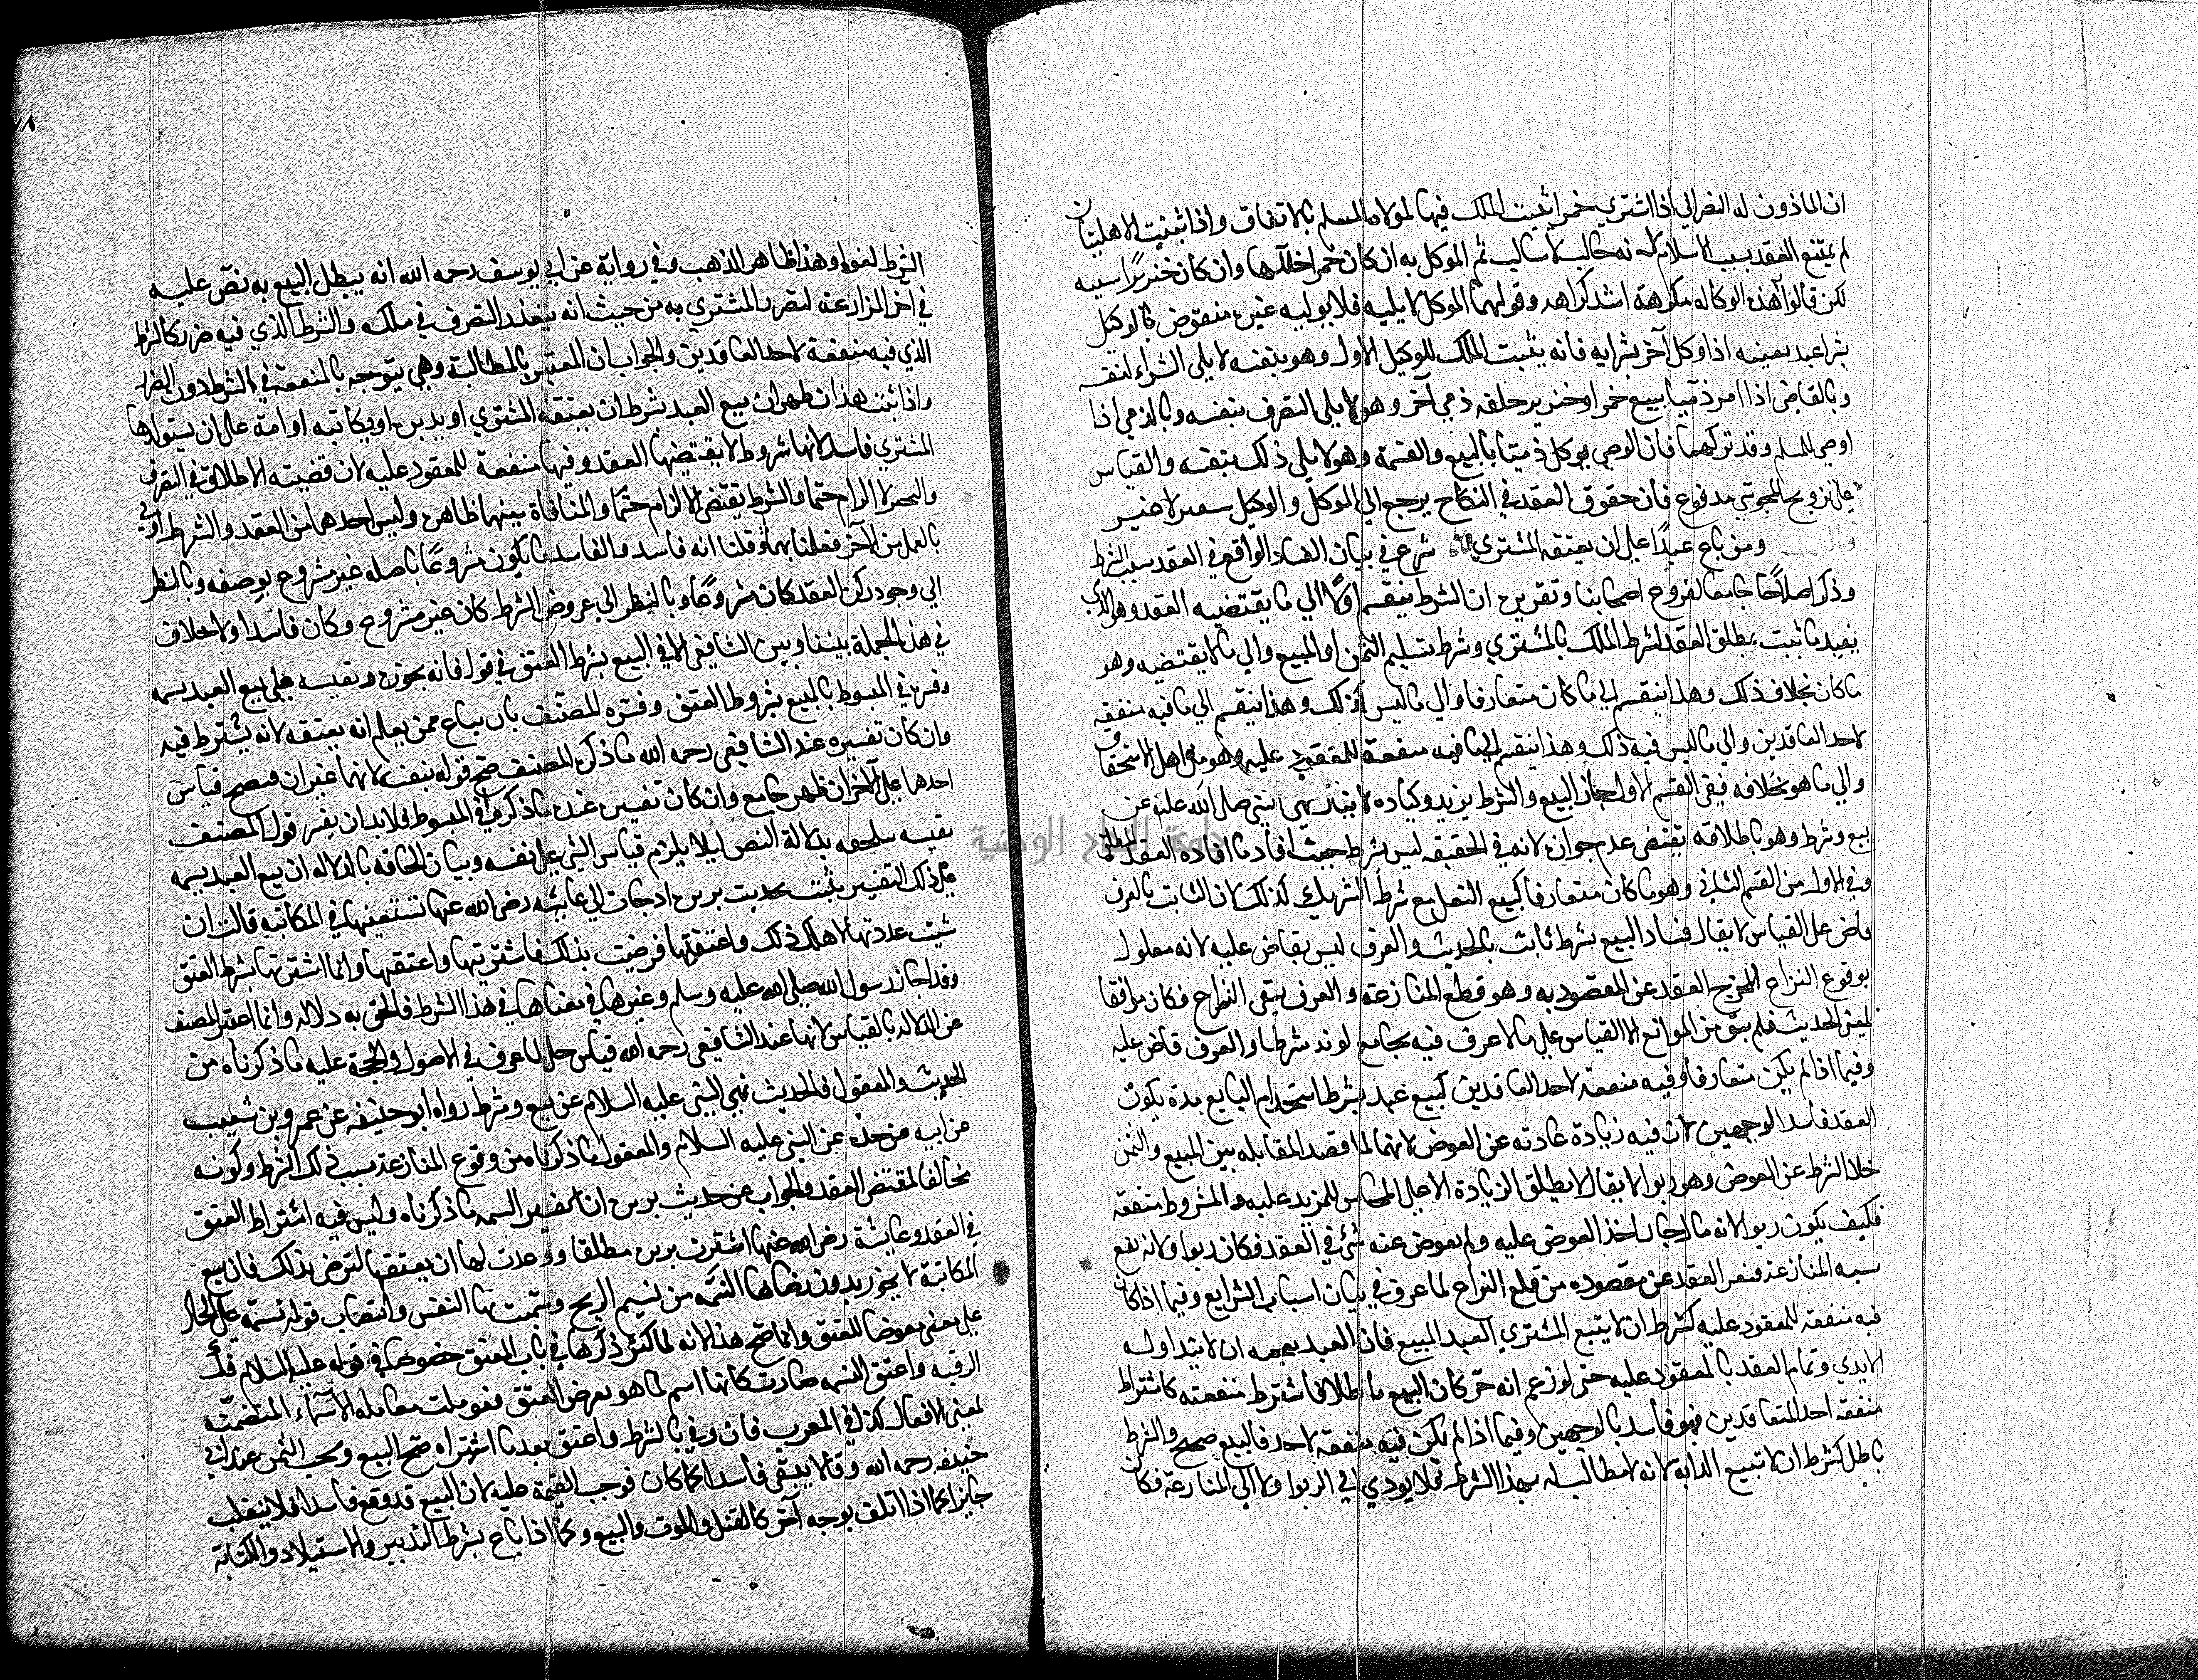 ان الماذون له النصراني اذا اشتري خمرا يثبت الملك فيها لمولاه المسلم بالاتفاق واذا ثبتت الاهليتان
لم يمتنع العقد بسبب الاسلام لانه جالب لا سالب ثم الموكل به ان كان خمرا خللها وان كان خنزيرا سيبه
لكن قالوا هذه الوكالة مكروهة اشد كراهة وقولهما الموكل لا يليه فلا يوليه غيره منقوض بالوكيل
بشرا عبد بعينه اذا وكل آخر بشرايه فانه يثبت الملك للوكيل الاول وهو بنفسه لا يلي الشراء لنفسه
وبالقاضي اذا امر ذميا ببيع خمر او خنزير خلفه ذمي آخر وهو لا يلي التصرف بنفسه وبالذمي اذا
اوصي لمسلم وقد تركهما فان الوصي يوكل ذميا بالبيع والقسمة وهو لا يلي ذلك بنفسه والقياس
علي تزويج المجوسي مدفوع فان حقوق العقد في النكاح يرجع الي الموكل والوكيل سفير لا غير
قال ومن باع عبدا علي ان يعتقه المشتري شرع في بيان الفساد الواقع في العقد بسبب الشرط
وذكر اصلا جامعا لفروع اصحابنا وتقريره ان الشرط ينقسم اولا الي ما يقتضيه العقد وهو الذي
يفيد ما يثبت بمطلق العقد كشرط الملك للمشتري وشرط تسليم الثمن او المبيع والي ما لا يقتضيه وهو
ما كان بخلاف ذلك وهذا ينقسم الي ما كان متعارفا والي ما ليس كذلك وهذا ينقسم الي ما فيه منفعة
لاحد العاقدين والي ما ليس فيه ذلك وهذا ينقسم الي ما فيه منفعة للمعقود عليه وهو من اهل الاستحقاق
والي ما هو بخلافه ففي القسم الاول جاز البيع والشرط يزيده وكادة لا يقال نهي النبي صلي الله عليه عن
بيع وشرط وهو باطلاقه يقتضي عدم جوازه لانه في الحقيقة ليس بشرط حيث افاد ما افاده العقد المطلق
وفي الاول من القسم الثاني وهو ما كان متعارفا كبيع النعل مع شرط التشريك كذلك لان الثابت بالعرف
قاض علي القياس لا يقال فساد البيع بشرط ثابت بالحديث والعرف ليس بقاض عليه لانه معلول
بوقوع النزاع المخرج العقد عن المقصود به وهو قطع المنازعة والعرف ينفي النزاع فكان موافقا
لمعني الحديث فلم يبق من الموانع الا القياس علي ما لا عرف فيه بجامع كونه شرطا والعرف قاض عليه
وفيما اذا لم يكن متعارفا وفيه منفعة لاحد العاقدين كبيع عبد بشرط استخدام البايع مدة يكون
العقد فاسدا لوجهين لان فيه زيادة عارية عن العوض لانهما لما قصدا المقابلة بين المبيع والثمن
خلا الشرط عن العوض وهو ربوا لا يقال لا يطلق الزيادة الا علي المجانس للمزيد عليه والمشروط منفعة
فكيف يكون ربوا لانه مال جاز اخذ العوض عليه ولم يعوض عنه شئ في العقد فكان ربوا ولانه يقع
بسببه المنازعة فيعر العقد عن مقصوده من قطع النزاع لما عرف في بيان اسباب الشرايع وفيما اذا كان
فيه منفعة للمعقود عليه كشرط ان لا يبيع المشتري العبد المبيع فان العبد يعجبه ان لا يتداوله
الايدي وتمام العقد بالمعقود عليه حتي لو زعم انه حر كان البيع باطلا فاشتراط منفعته كاشتراط
منفعة احد المتعاقدين فهو فاسد بالوجهين وفيما اذا لم يكن فيه منفعة لاحد فالبيع صحيح والشرط
باطل كشرط ان لا يبيع الدابة لانه لا مطالب له بهذا الشرط فلا يودي الي الربوا ولا الي المنازعة فكان
الشرط لغوا وهذا ظاهر المذهب وفي رواية عن ابي يوسف رحمه الله انه يبطل البيع به نص عليه
في آخر المزارعة لتضرر المشتري به من حيث انه يتعذر التصرف في ملكه والشرط الذي فيه ضرر كالشرط
الذي فيه منفعة لاحد العاقدين والجواب ان المعتبر المطالبة وهي يتوجه بالمنفعة في الشرط دون الضرر
واذا ثبت هذا ظهر ان بيع العبد بشرط ان يعتقه المشتري او يدبره او يكاتبه او امة علي ان يستولدها
المشتري فاسد لانها شروط لا يقتضيها العقد وفيها منفعة للمعقود عليه لان قضيته الاطلاق في التصرف
والتخيير لا الزام حتما والشرط يقتضي الالزام حتما والمنافاة بينهما ظاهرة وليس احدهما من العقد والشرط اولي
بالعمل من الآخر فعملنا بهما وقلنا انه فاسد والفاسد ما يكون مشروعا باصله غير مشروع بوصفه وبالنظر
الي وجود ركن العقد كان مشروعا وبالنظر الي عروض الشرط كان غير مشروع وكان فاسدا ولا خلاف
في هذه الجملة بيننا وبين الشافعي الا في البيع بشرط العتق في قول فانه يجوزه ويقيسه علي بيع العبد نسمة
وفسره في المبسوط بالبيع بشرط العتق وفسره المصنف بان يباع ممن يعلم انه يعتقه لا انه يشترط فيه
وان كان تفسيره عند الشافعي رحمه الله ما ذكره المصنف صح قوله بنفسه لانهما غيران فصح قياس
احدهما علي الآخر ان ظهر جامع وان كان تفسيره عنده ما ذكره في المبسوط فلا بد ان يفسر قول المصنف
يقيسه يلحقه بدلالة النص ليلا يلزم قياس الشئ علي نفسه وبيان الحاقه بالدلالة ان بيع العبد نسمة
علي ذلك التفسير يثبت بحديث بريرة اذ جات الي عايشة رضي الله عنها تستعينها في المكاتبة قالت ان
شيت عددتها لاهلك ذلك واعتقتك فرضيت بذلك فاشترتها واعتقتها وانما اشترتها بشرط العتق
وقد اجاز رسول الله صلي الله عليه وسلم وغيرها في معناها في هذا الشرط فالحق به دلالة وانما اعتبر المصنف
عن الدلالة بالقياس لانها عند الشافعي رحمه الله قياس جلي لما عرف في الاصول والحجة عليه ما ذكرناه من
الحديث والمعقول فالحديث نهي النبي عليه السلام عن بيع وشرط رواه ابو حنيفه عن عمرو بن شعيب
عن ابيه عن جده عن النبي عليه السلام والمعقول ما ذكرناه من وقوع المنازعة بسبب ذلك الشرط وكونه
مخالفا لمقتضي العقد والجواب عن حديث بريرة ان تفسير النسمة ما ذكرناه وليس فيه اشتراط العتق
في العقد وعايشة رضي الله عنها اشترت بريرة مطلقا ووعدت لها ان يعتقها لترضي بذلك فان بيع
المكاتبة لا يجوز بدون رضاها النسمة من نسيم الريح وسميت بها النفس وانتصاب قوله نسمة علي الحال
علي معني معرضا للعتق وانما صح هذا لانه لما كثر ذكرها في باب العتق خصوصا في قوله عليه السلام فك
الرقبه واعتق النسمه صارت كانها اسم لما هو بعرض العتق فعوملت معاملة الاسماء المتضمنة
لمعني الافعال كذا في المغرب فان وفي بالشرط واعتق بعد ما اشتراه صح البيع ويجب الثمن عند ابي
حنيفه رحمه الله وقالا يبقي فاسدا كما كان فوجب القيمة عليه لان البيع قد وقع فاسدا فلا ينقلب
جايزا كما اذا اتلف بوجه آخر كالقتل والموت والبيع وكما اذا باع بشرط التدبير والاستيلاد والكتابة